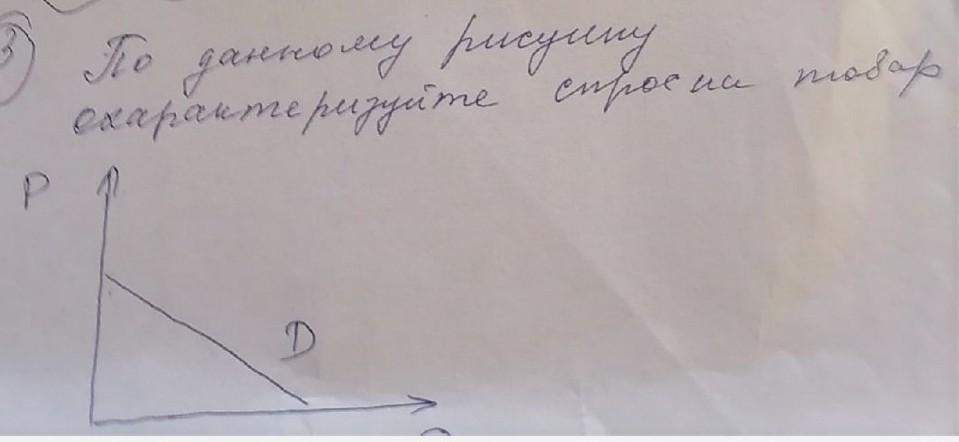 3) По данному рисунку
охарактеризуйте спрос на товар
P
D